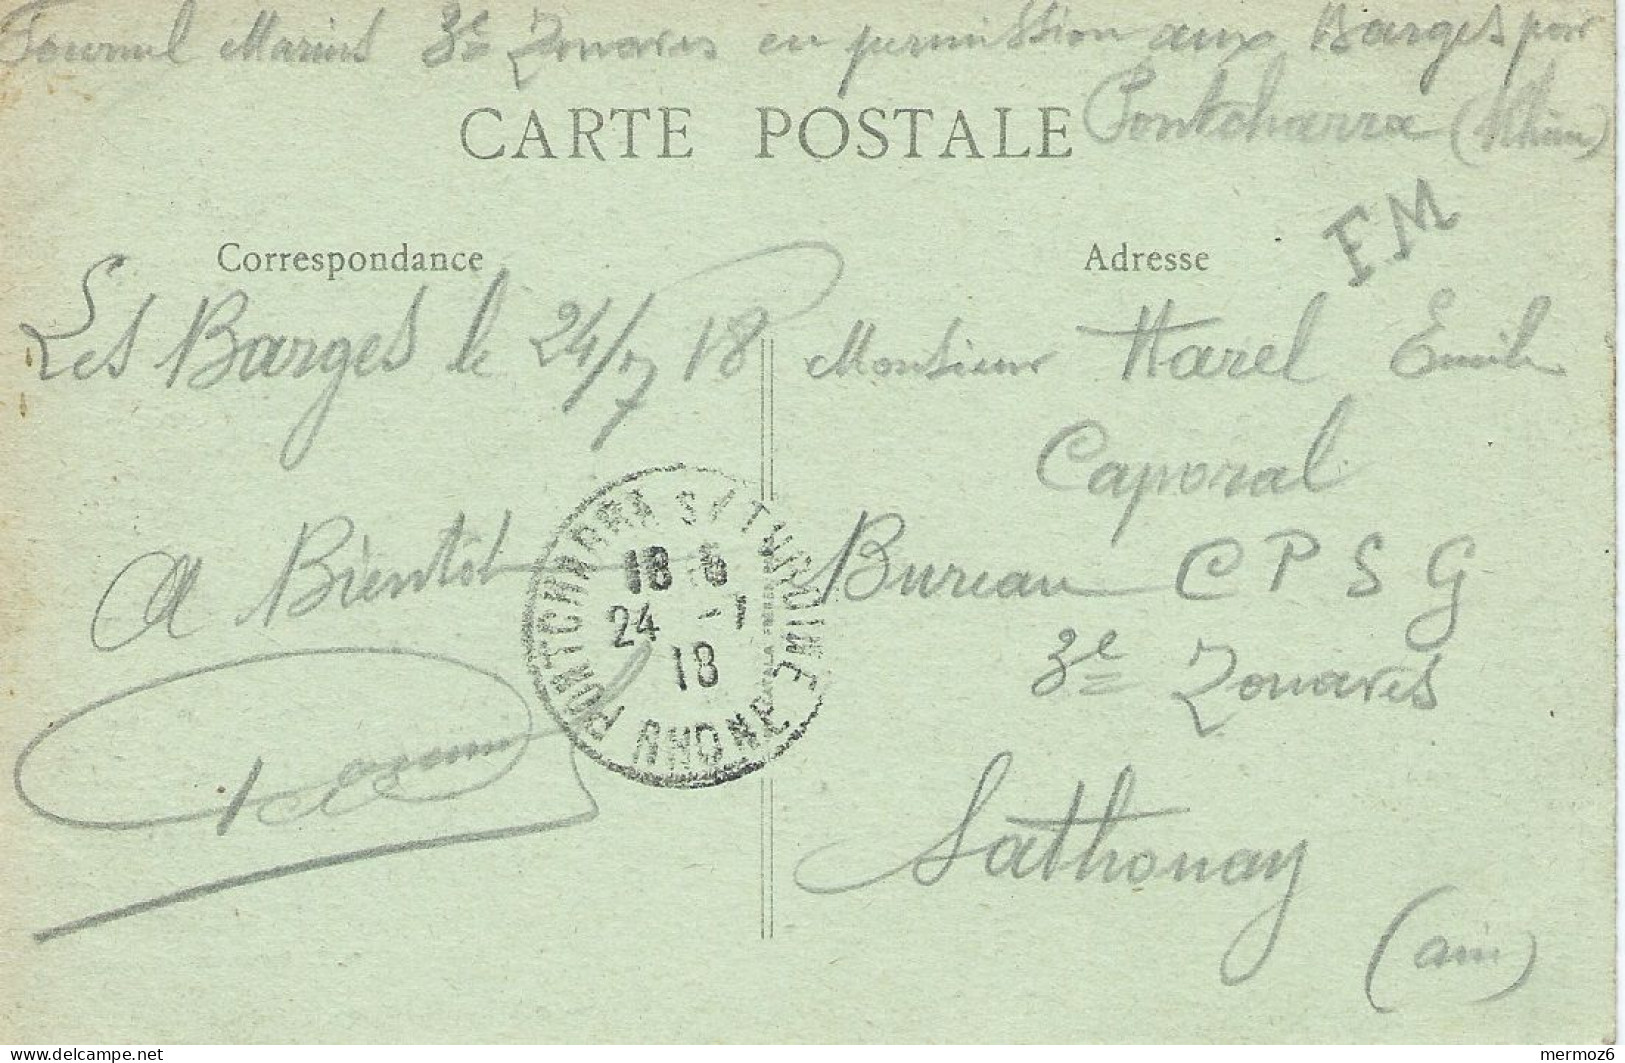 Marius 3e Zouaves en permission aux Barges par
Pontcharra (Rhône)
CARTE POSTALE
F.M
Correspondance
Adresse
Les Barges le 24/7 18
Monsieur Harel Emile
Caporal
A Bientôt
Bureau C P S G
3e Zouaves
Sathonay
(ain)
PONTCHARRA S/ TURDINE
18
24 -7
18
RHONE
delcampe.net
mermoz6